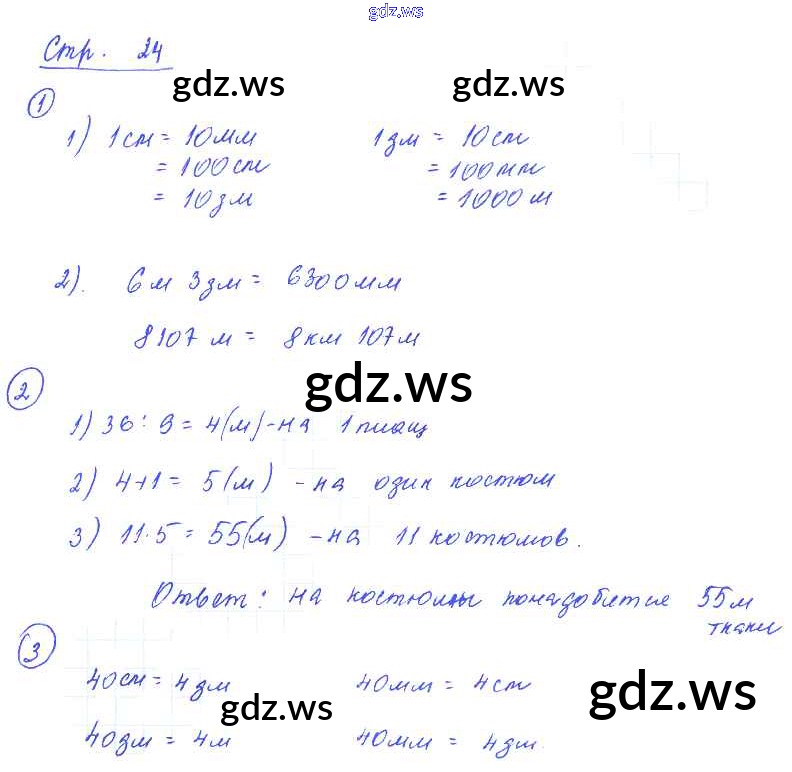 gdz.ws
Стр. 24
gdz.ws gdz.ws
1
1) 1см = 10мм 1дм = 10см
= 100см = 100мм
= 10дм = 1000м
2). 6м 3дм = 6300мм
8107 м = 8км 107м
gdz.ws
2
1) 36 : 9 = 4(м) - на 1 плащ
2) 4+1 = 5(м) - на один костюм
3) 11·5 = 55(м) - на 11 костюмов.
Ответ: на костюмы понадобится 55м
ткани
3
40см = 4дм 40мм = 4см
gdz.ws gdz.ws
40дм = 4м 40мм = 4дм.